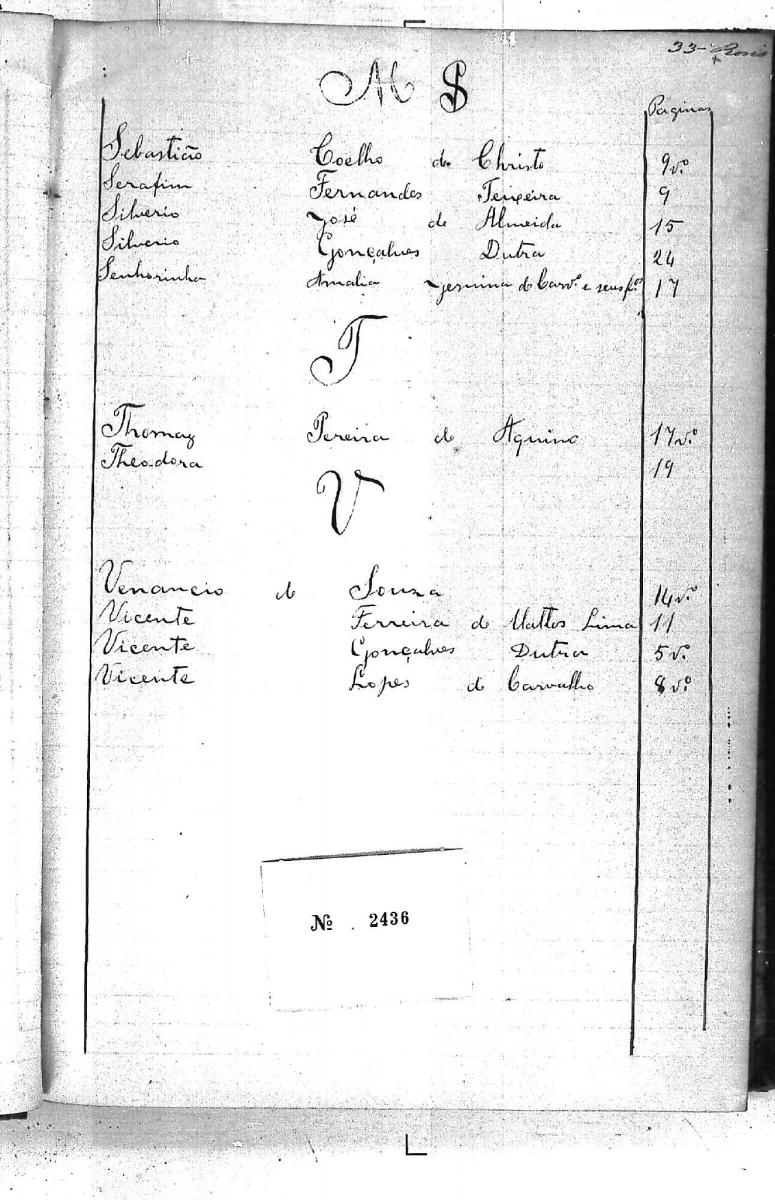 33-
M S
Paginas
Sebastião Coelho de Christo 9vº
Serafim Fernandes Teixeira 9
Silverio José de Almeida 15
Silverio Gonçalves Dutra 24
Senhorinha Amalia de Carvº e seus fºs 17
T
Thomaz Pereira de Aquino 17vº
Theodora 19
V
Venancio de Souza 14vº
Vicente Ferreira de Mattos Lima 11
Vicente Gonçalves Dutra 5vº
Vicente Lopes de Carvalho 8vº
Nº 2436